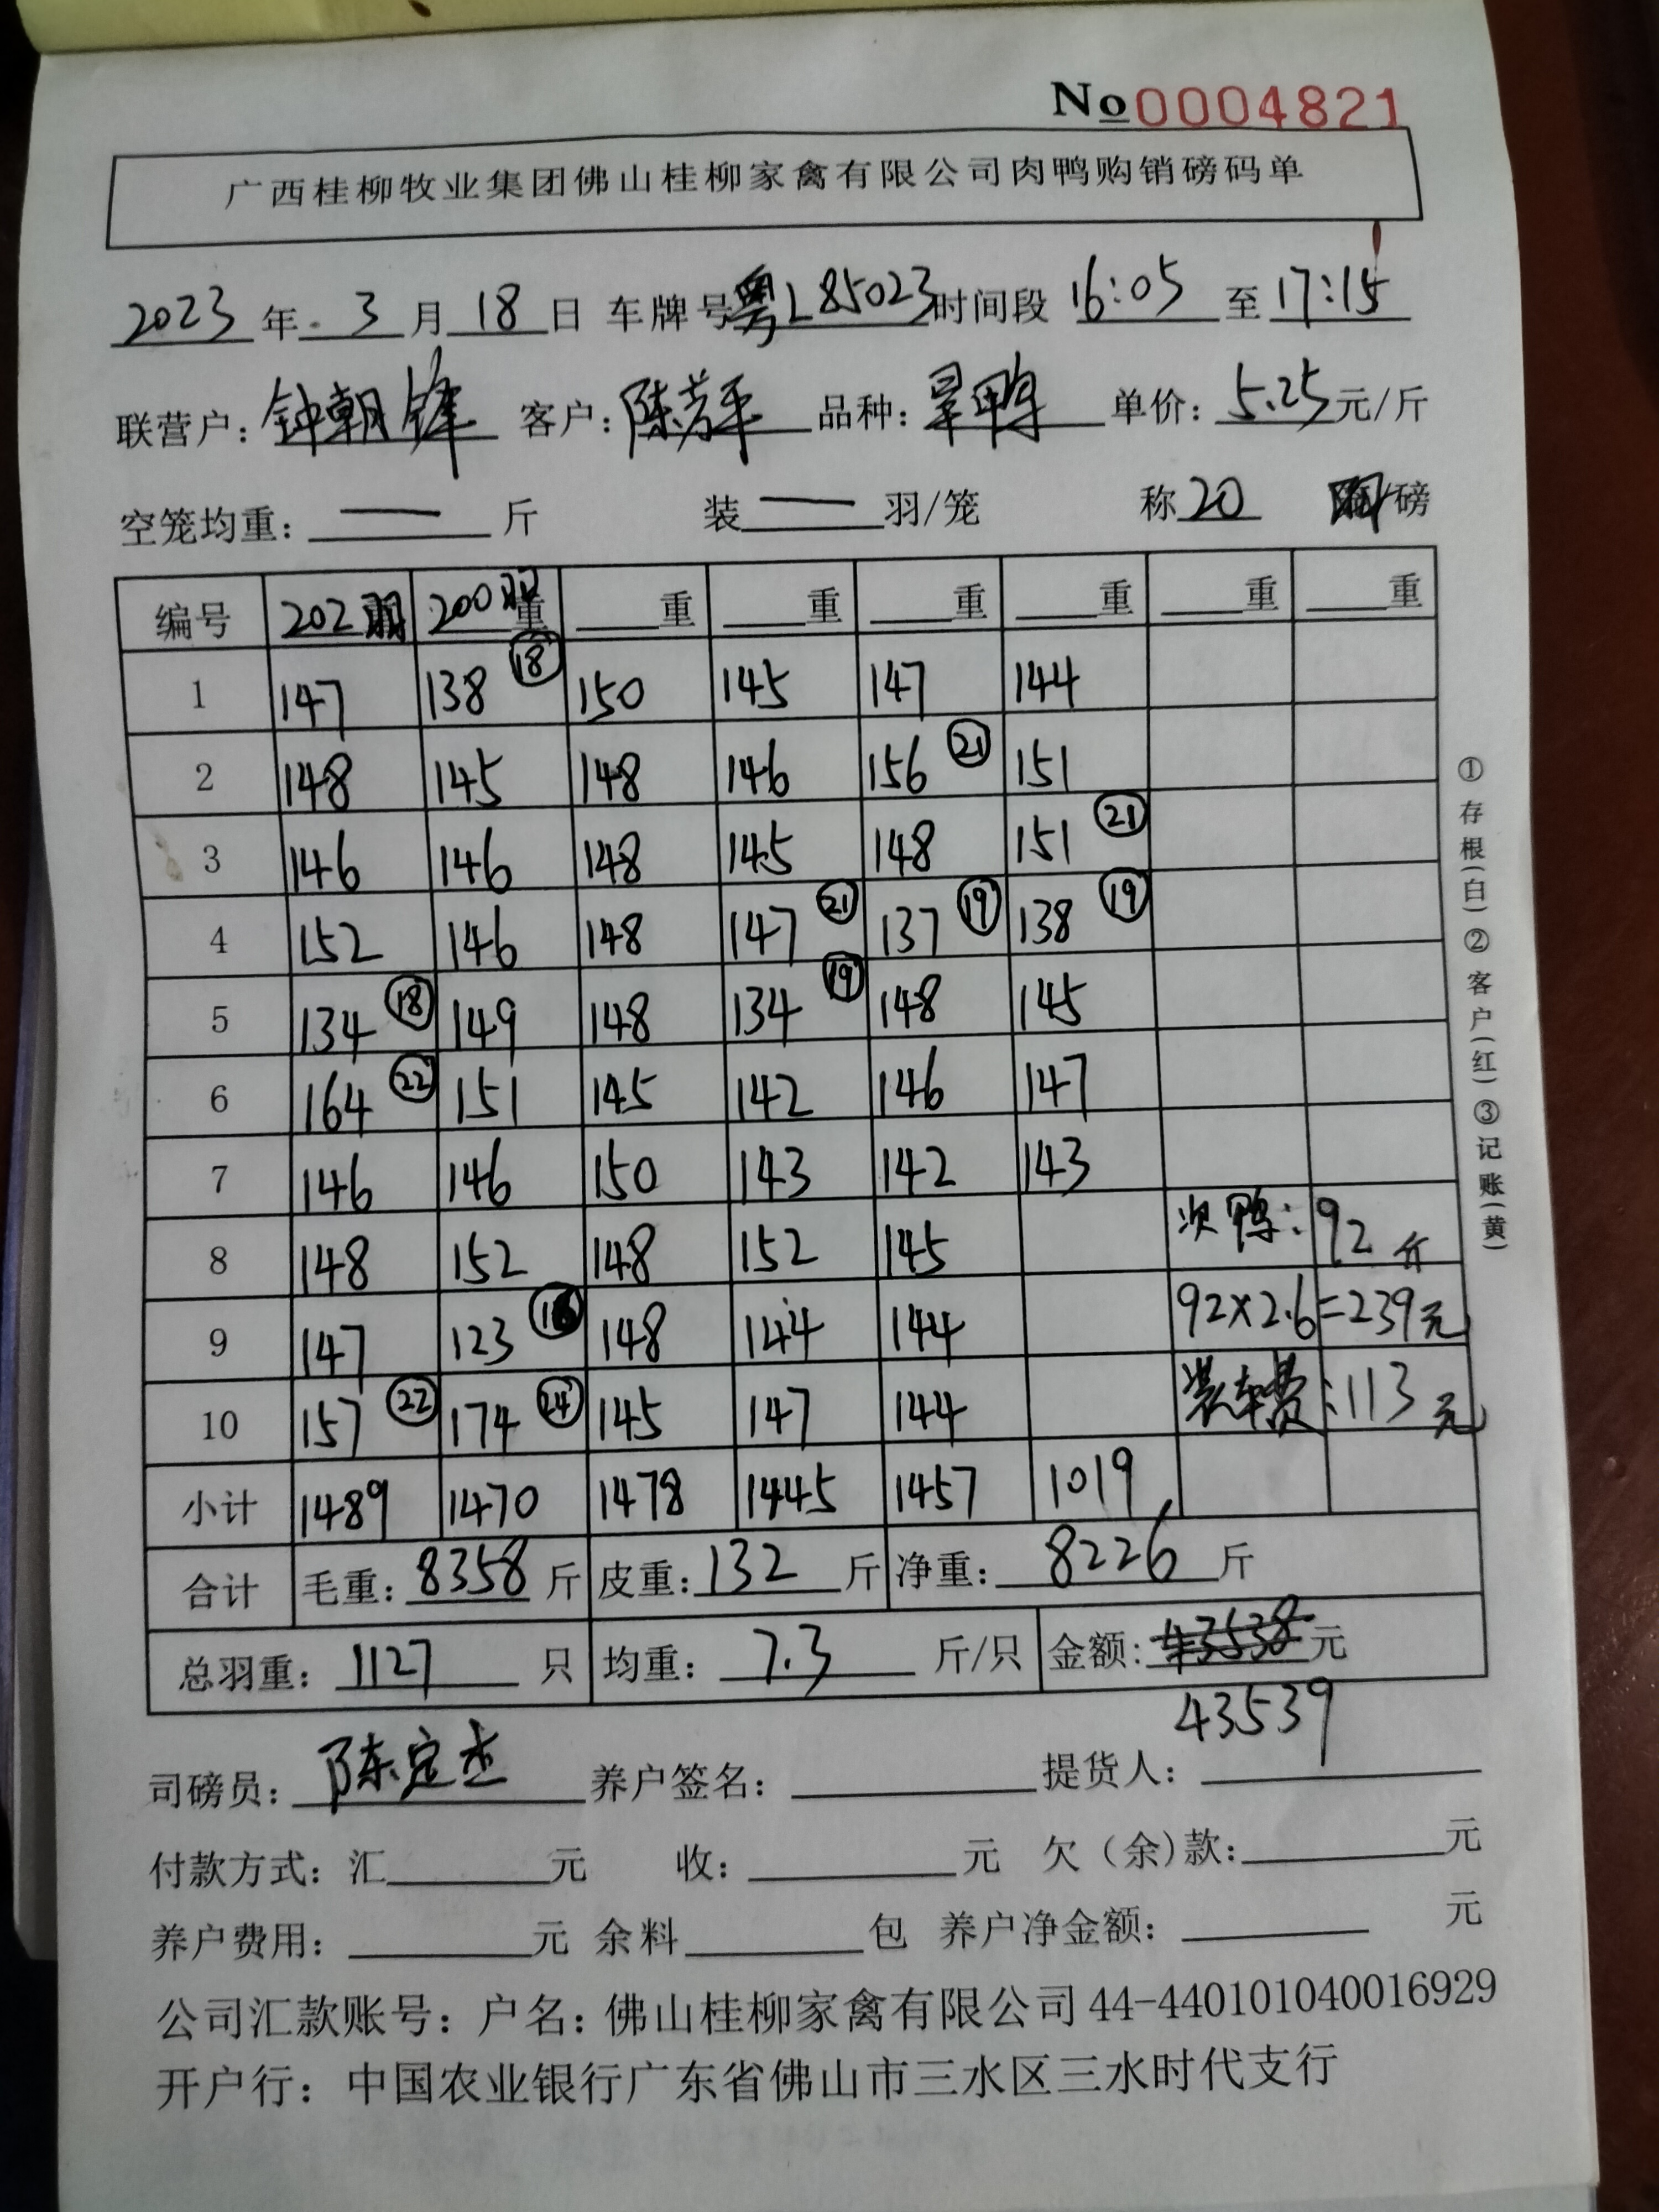 No 0004821
广西桂柳牧业集团佛山桂柳家禽有限公司肉鸭购销磅码单
2023年 3月18日 车牌号粤L85023时间段 16:05 至17:15
联营户:钟朝锋 客户:陈芳平 品种:旱鸭 单价:5.25元/斤
空笼均重: — 斤 装 — 羽/笼 称20 /磅
编号 202羽 200羽重 重 重 重 重 重 重
1 147 138 ⑱ 150 145 147 144
2 148 145 148 146 156 ㉑ 151
3 146 146 148 145 148 151 ㉑
4 152 146 148 147 ㉑ 137 ⑲ 138 ⑲
5 134 ⑱ 149 148 134 ⑲ 148 145
6 164 ㉒ 151 145 142 146 147
7 146 146 150 143 142 143
8 148 152 148 152 145 次鸭: 92斤
9 147 123 148 144 144 92×2.6=239元
10 157 ㉒ 174 ㉔ 145 147 144 装车费:113元
小计 1489 1470 1478 1445 1457 1019
合计 毛重:8358斤 皮重:132斤 净重:8226斤
总羽重:1127只 均重:7.3斤/只 金额:43538元
43539
司磅员:陈定杰 养户签名: 提货人:
付款方式:汇 元 收: 元 欠(余)款: 元
养户费用: 元 余料 包 养户净金额: 元
公司汇款账号:户名:佛山桂柳家禽有限公司44-440101040016929
开户行:中国农业银行广东省佛山市三水区三水时代支行
①存根(白)②客户(红)③记账(黄)